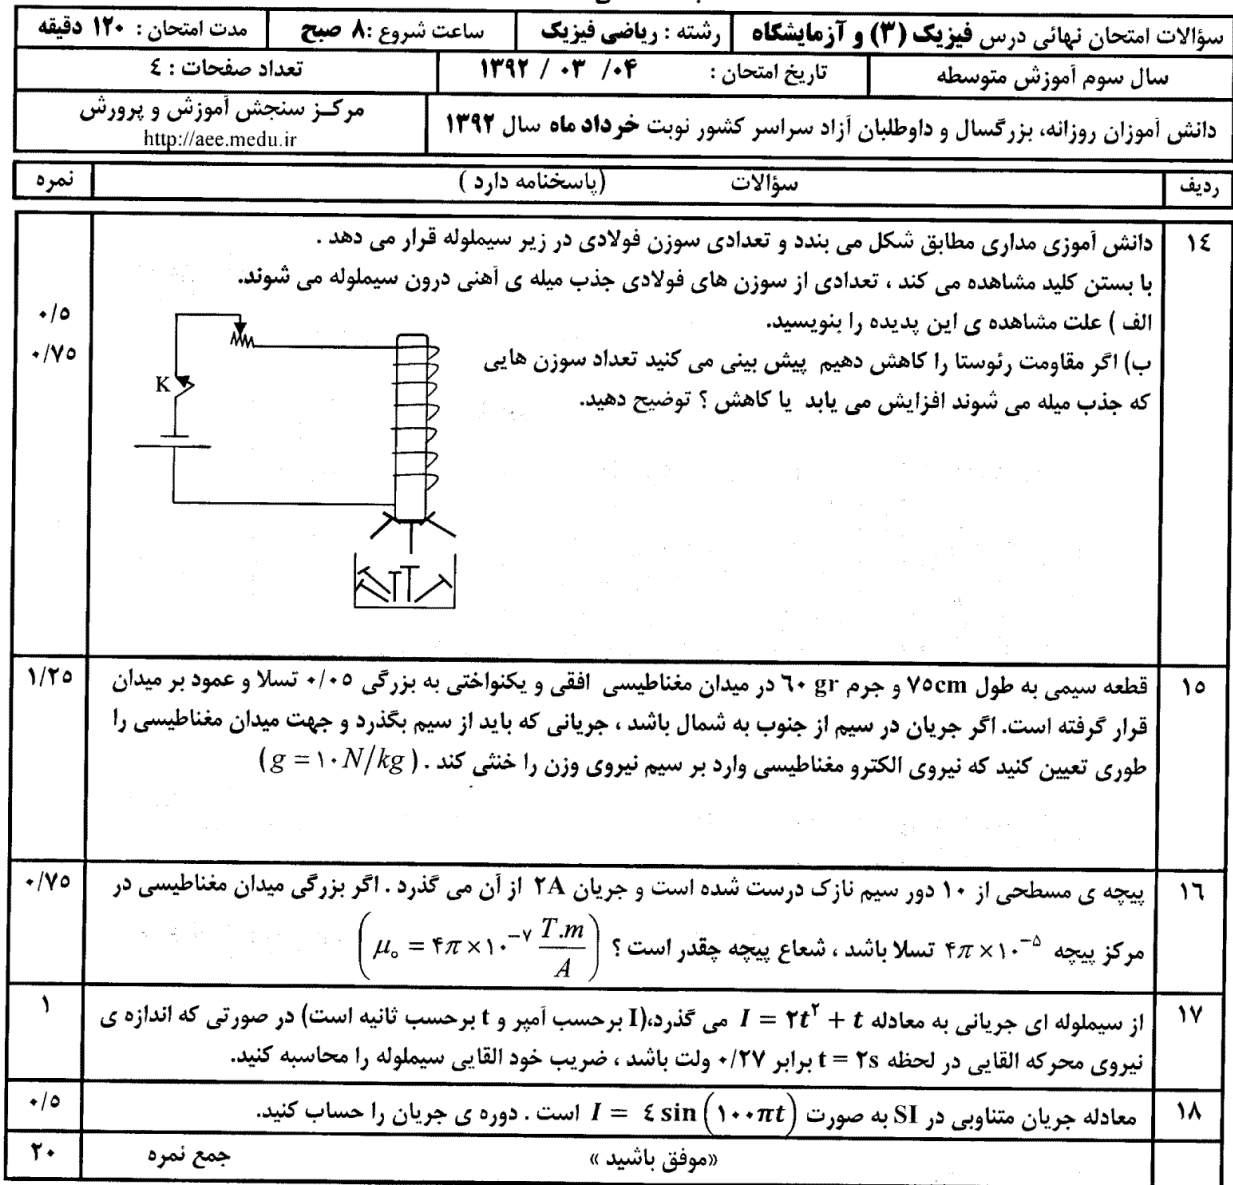 سؤالات امتحان نهائی درس فیزیک (۳) و آزمایشگاه
رشته : ریاضی فیزیک
ساعت شروع :۸ صبح
مدت امتحان : ۱۲۰ دقیقه
سال سوم آموزش متوسطه
تاریخ امتحان : ۰۴/ ۰۳ / ۱۳۹۲
تعداد صفحات : ٤
دانش آموزان روزانه، بزرگسال و داوطلبان آزاد سراسر کشور نوبت خرداد ماه سال ۱۳۹۲
مرکـز سنجش آموزش و پرورش
http://aee.medu.ir
ردیف
سؤالات (پاسخنامه دارد )
نمره
١٤
دانش آموزی مداری مطابق شکل می بندد و تعدادی سوزن فولادی در زیر سیملوله قرار می دهد .
با بستن کلید مشاهده می کند ، تعدادی از سوزن های فولادی جذب میله ی آهنی درون سیملوله می شوند.
الف ) علت مشاهده ی این پدیده را بنویسید.
۰/٥
ب) اگر مقاومت رئوستا را کاهش دهیم پیش بینی می کنید تعداد سوزن هایی
۰/۷٥
که جذب میله می شوند افزایش می یابد یا کاهش ؟ توضیح دهید.
K
١٥
قطعه سیمی به طول ۷٥cm و جرم ٦۰ gr در میدان مغناطیسی افقی و یکنواختی به بزرگی ۰/۰٥ تسلا و عمود بر میدان
۱/۲٥
قرار گرفته است. اگر جریان در سیم از جنوب به شمال باشد ، جریانی که باید از سیم بگذرد و جهت میدان مغناطیسی را
طوری تعیین کنید که نیروی الکترو مغناطیسی وارد بر سیم نیروی وزن را خنثی کند . (g = ۱۰ N/kg)
١٦
پیچه ی مسطحی از ۱۰ دور سیم نازک درست شده است و جریان ۲A از آن می گذرد . اگر بزرگی میدان مغناطیسی در
۰/۷٥
مرکز پیچه ۴π × ۱۰⁻⁵ تسلا باشد ، شعاع پیچه چقدر است ؟ (μ₀ = ۴π × ۱۰⁻⁷ T.m/A)
١٧
از سیملوله ای جریانی به معادله I = ۲t² + t می گذرد،(I برحسب آمپر و t برحسب ثانیه است) در صورتی که اندازه ی
۱
نیروی محرکه القایی در لحظه t = ۲s برابر ۰/۲۷ ولت باشد ، ضریب خود القایی سیملوله را محاسبه کنید.
١٨
معادله جریان متناوبی در SI به صورت I = ٤ sin (۱۰۰πt) است . دوره ی جریان را حساب کنید.
۰/٥
«موفق باشید »
جمع نمره
۲۰